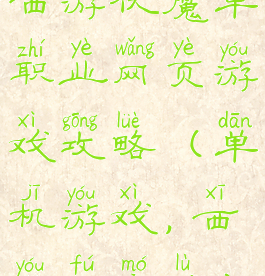 西游伏魔单
zhí yè wǎng yè yóu
职业网页游
xì gōng lüè dān
戏攻略（单
jī yóu xì xī
机游戏，西
yóu fú mó lù